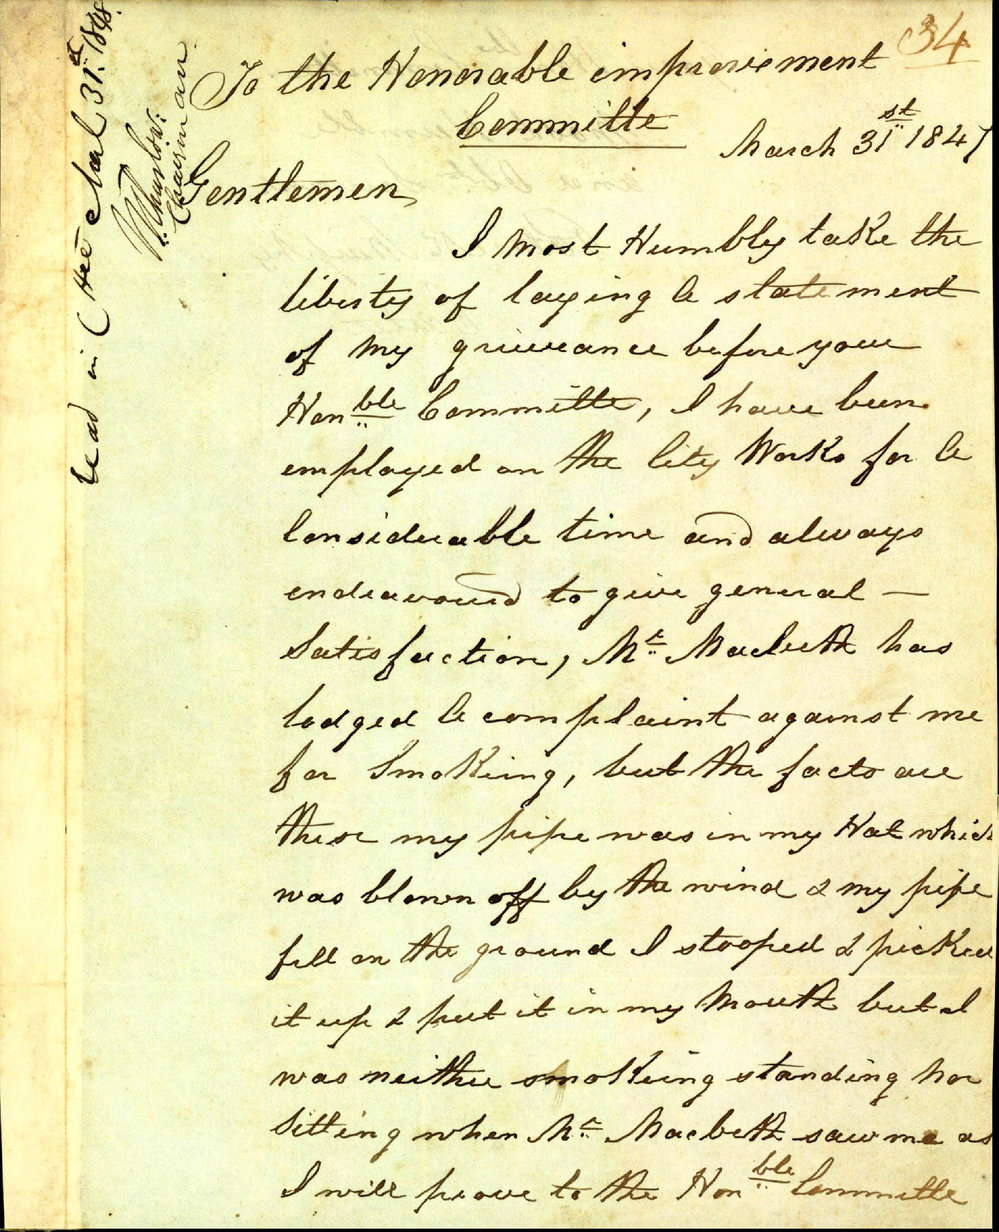 34
To the Honorable improvement
Committe
March 31st 1847
Gentlemen,
I Most Humbly take the
liberty of laying a statement
of My grieveance before your
Honble Committe, I have been
employed on the City Works for a
Considerable time and always
endeavoured to give general —
Satisfaction, Mr. Macbeth has
lodged a complaint against me
for Smokeing, but the facts are
these my pipe was in my Hat which
was blown off by the wind & my pipe
fell on the ground I stooped & picked
it up & put it in my Mouth but I
was neither smokeing standing nor
Sitting when Mr. Macbeth saw me as
I will prove to the Honble Committe
read in Ctee Mar 31st
Chairman